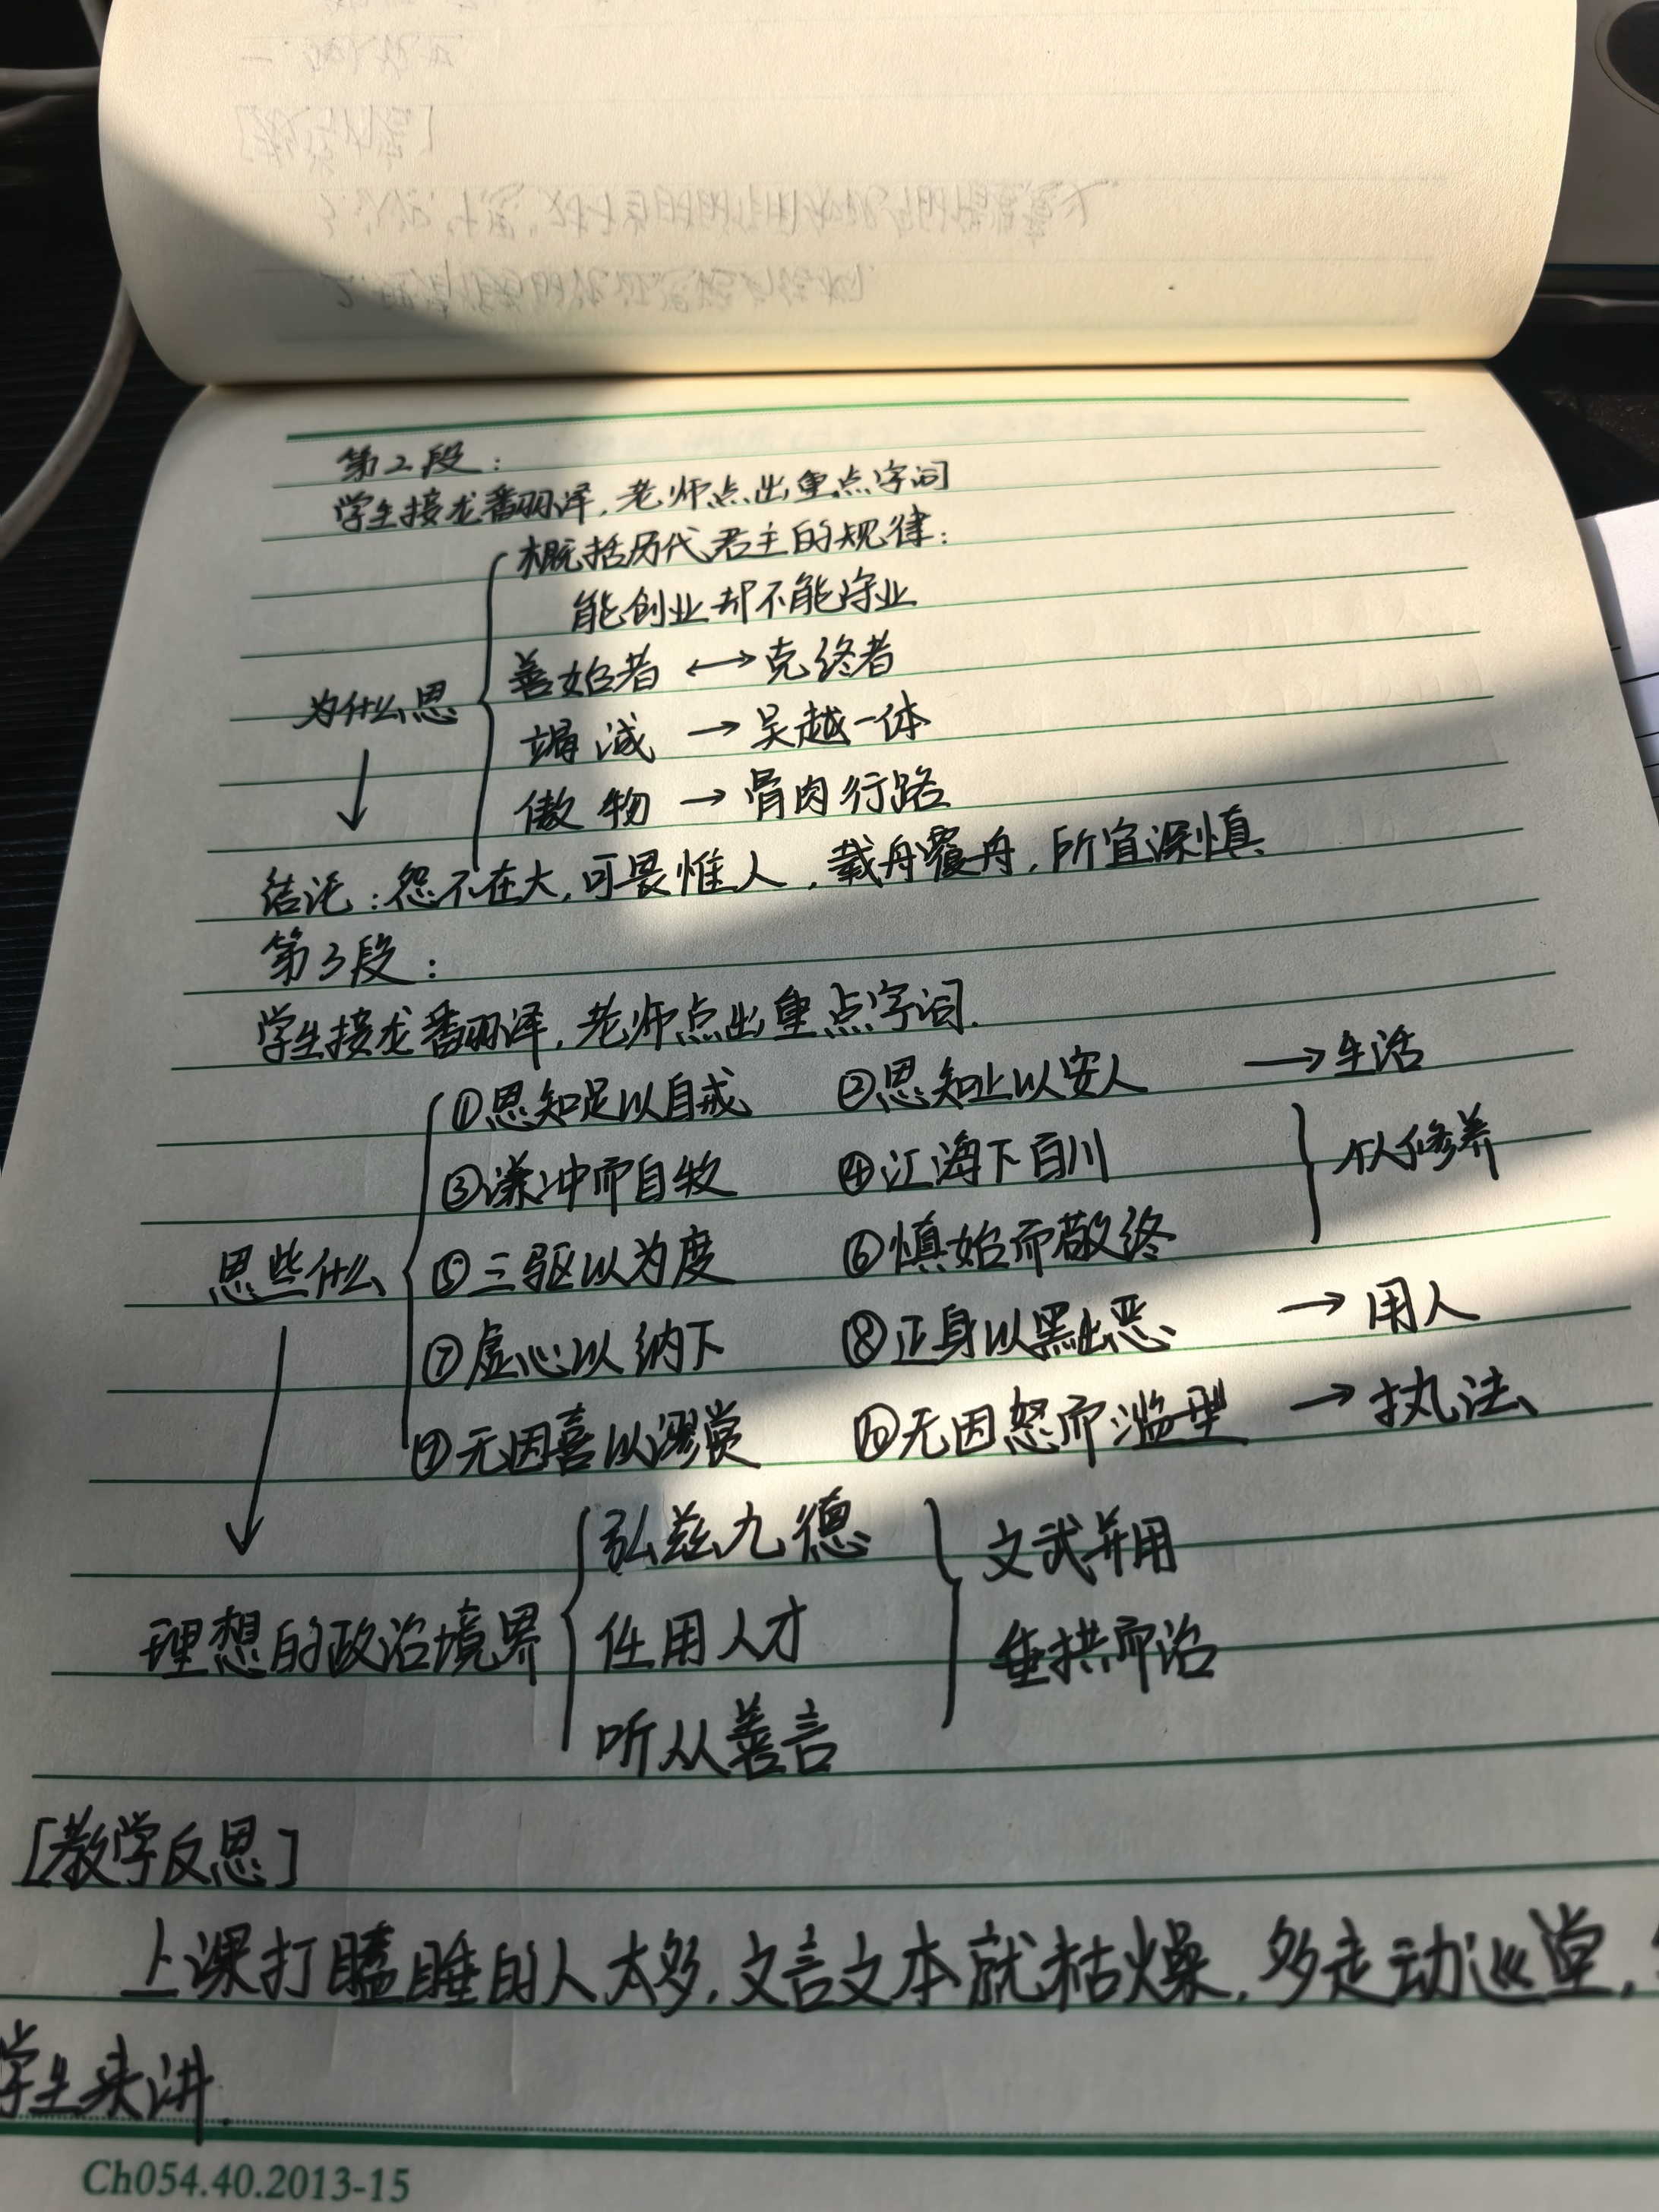 第2段：
学生接龙翻译，老师点出重点字词
概括历代君主的规律：
能创业却不能守业
为什么思
善始者 ←→ 克终者
竭诚 → 吴越一体
傲物 → 骨肉行路
结论：怨不在大，可畏惟人，载舟覆舟，所宜深慎
第3段：
学生接龙翻译，老师点出重点字词.
①思知足以自戒 ②思知止以安人 → 生活
③谦冲而自牧 ④江海下百川
个人修养
思些什么
⑤三驱以为度 ⑥慎始而敬终
⑦虚心以纳下 ⑧正身以黜恶 → 用人
⑨无因喜以谬赏 ⑩无因怒而滥刑 → 执法
弘兹九德 文武并用
理想的政治境界 任用人才 垂拱而治
听从善言
[教学反思]
上课打瞌睡的人太多，文言文本就枯燥，多走动巡堂，
学生来讲.
Ch054.40.2013-15